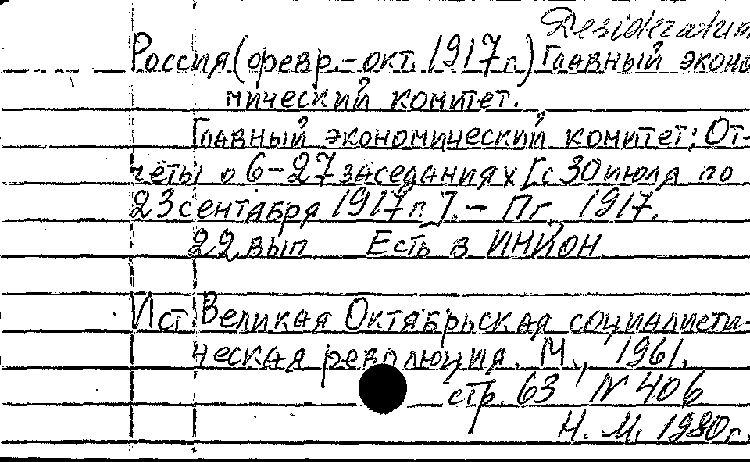 Desideratum
Россия (февр.-окт. 1917 г.) Главный эконо-
мический комитет.
Главный экономический комитет: От-
четы о 6-27 заседаниях [с 30 июля по
23 сентября 1917 г.]. - Пг., 1917.
22 вып Есть в ИНИОН
Ист. Великая Октябрьская социалисти-
ческая революция. М., 1961.
стр. 63 N 406
Н. М. 1980 г.